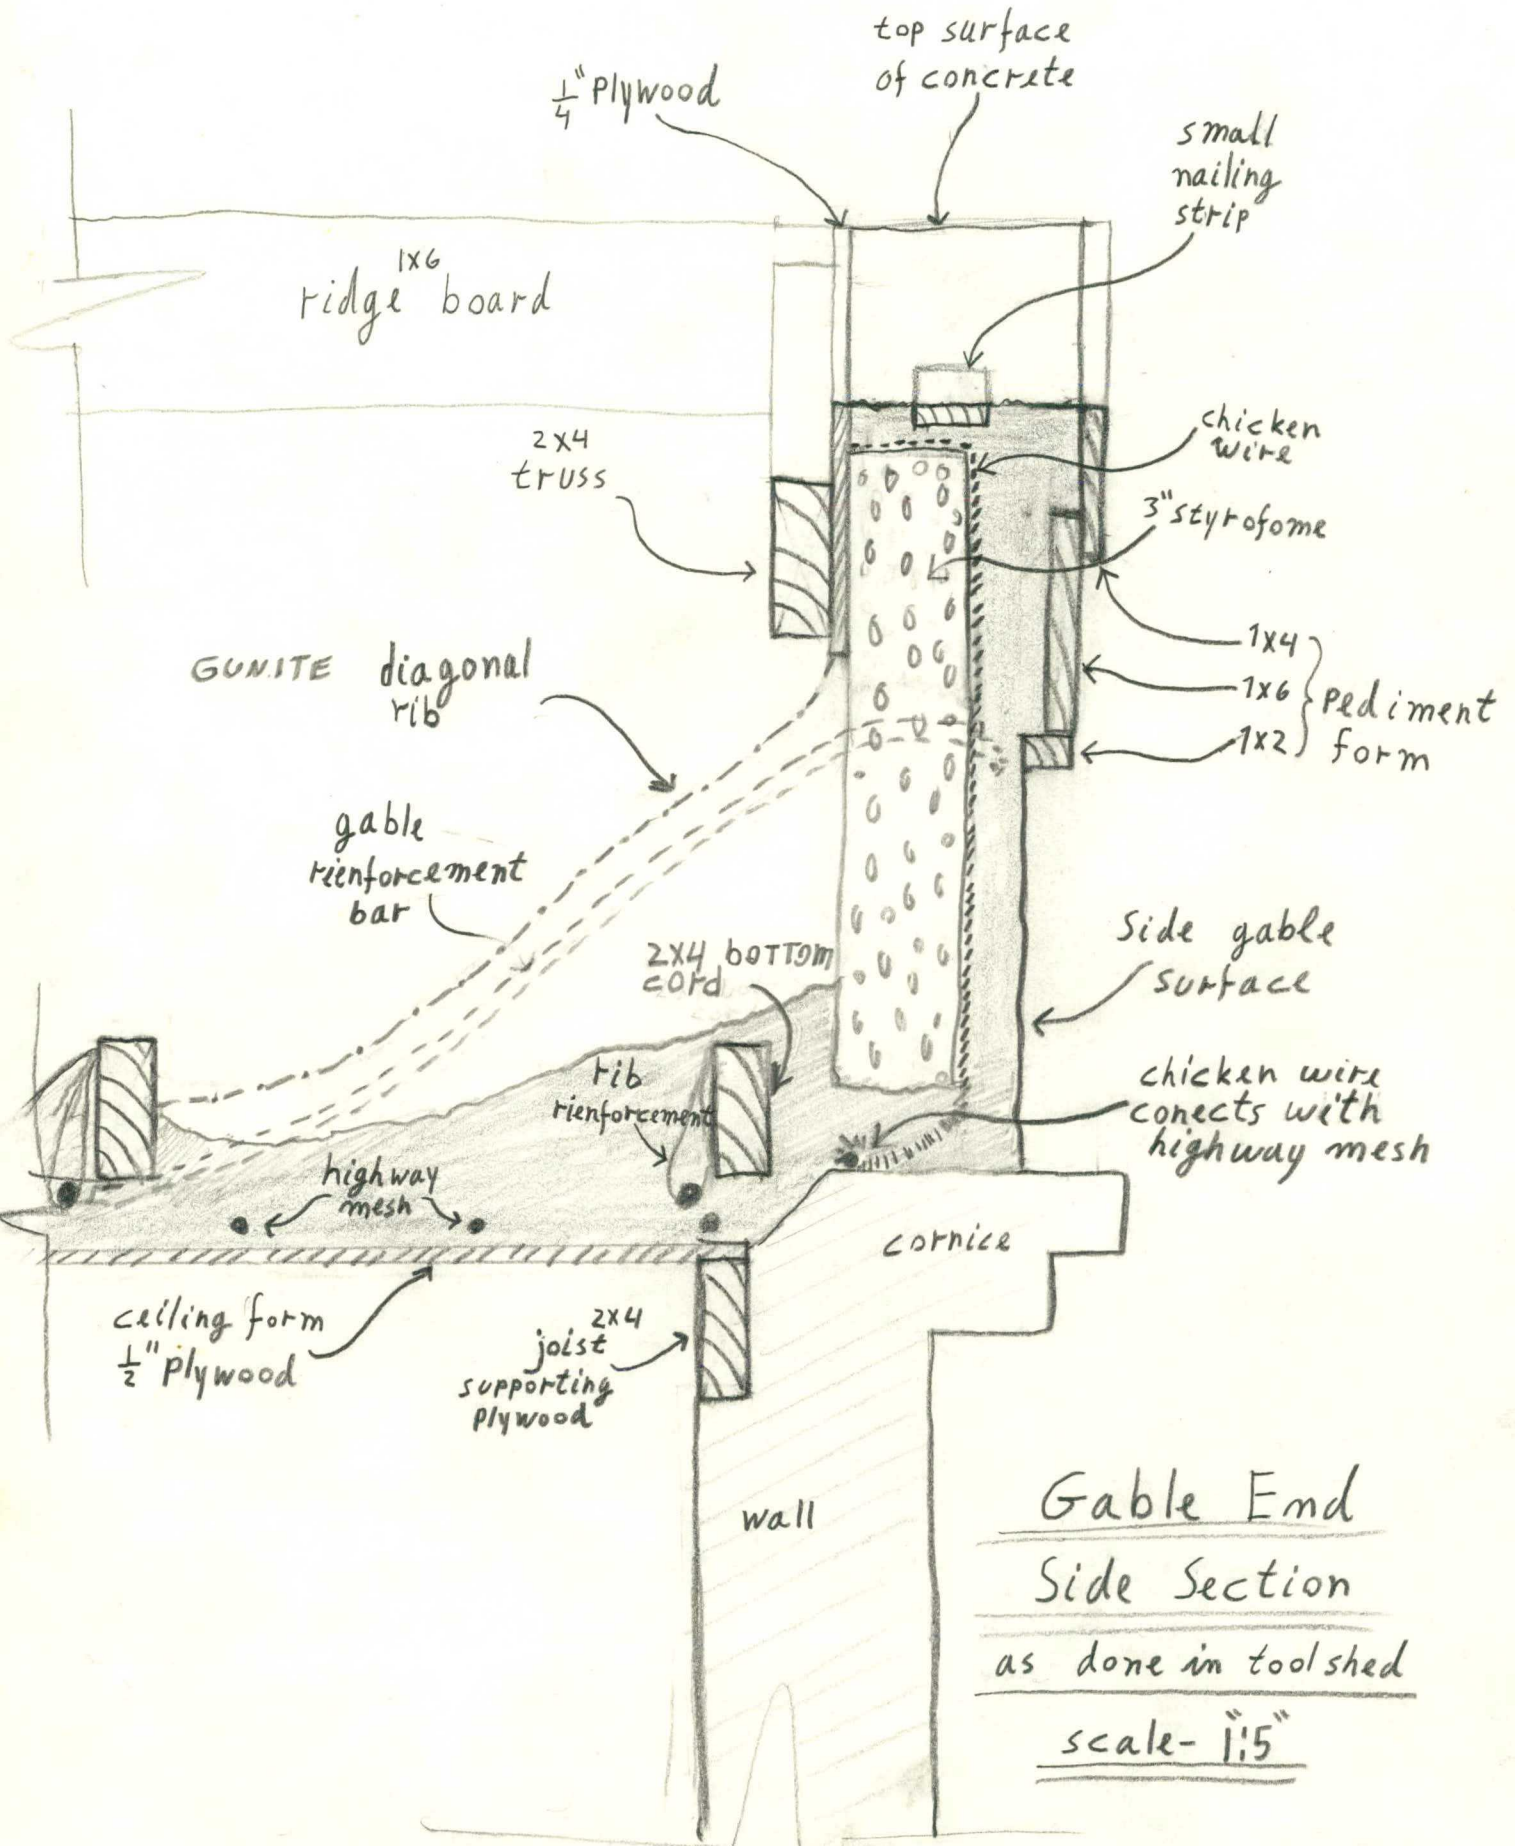 top surface
of concrete
1/4" Plywood
small
nailing
strip
1x6
ridge board
chicken
wire
2x4
truss
3" styrofome
GUNITE diagonal
rib
1x4
1x6
1x2
pediment
form
gable
rienforcement
bar
2x4 bottom
cord
Side gable
surface
rib
rienforcement
chicken wire
conects with
highway mesh
highway
mesh
cornice
ceiling form
1/2" plywood
2x4
joist
supporting
plywood
wall
Gable End
Side Section
as done in toolshed
scale- 1":5"